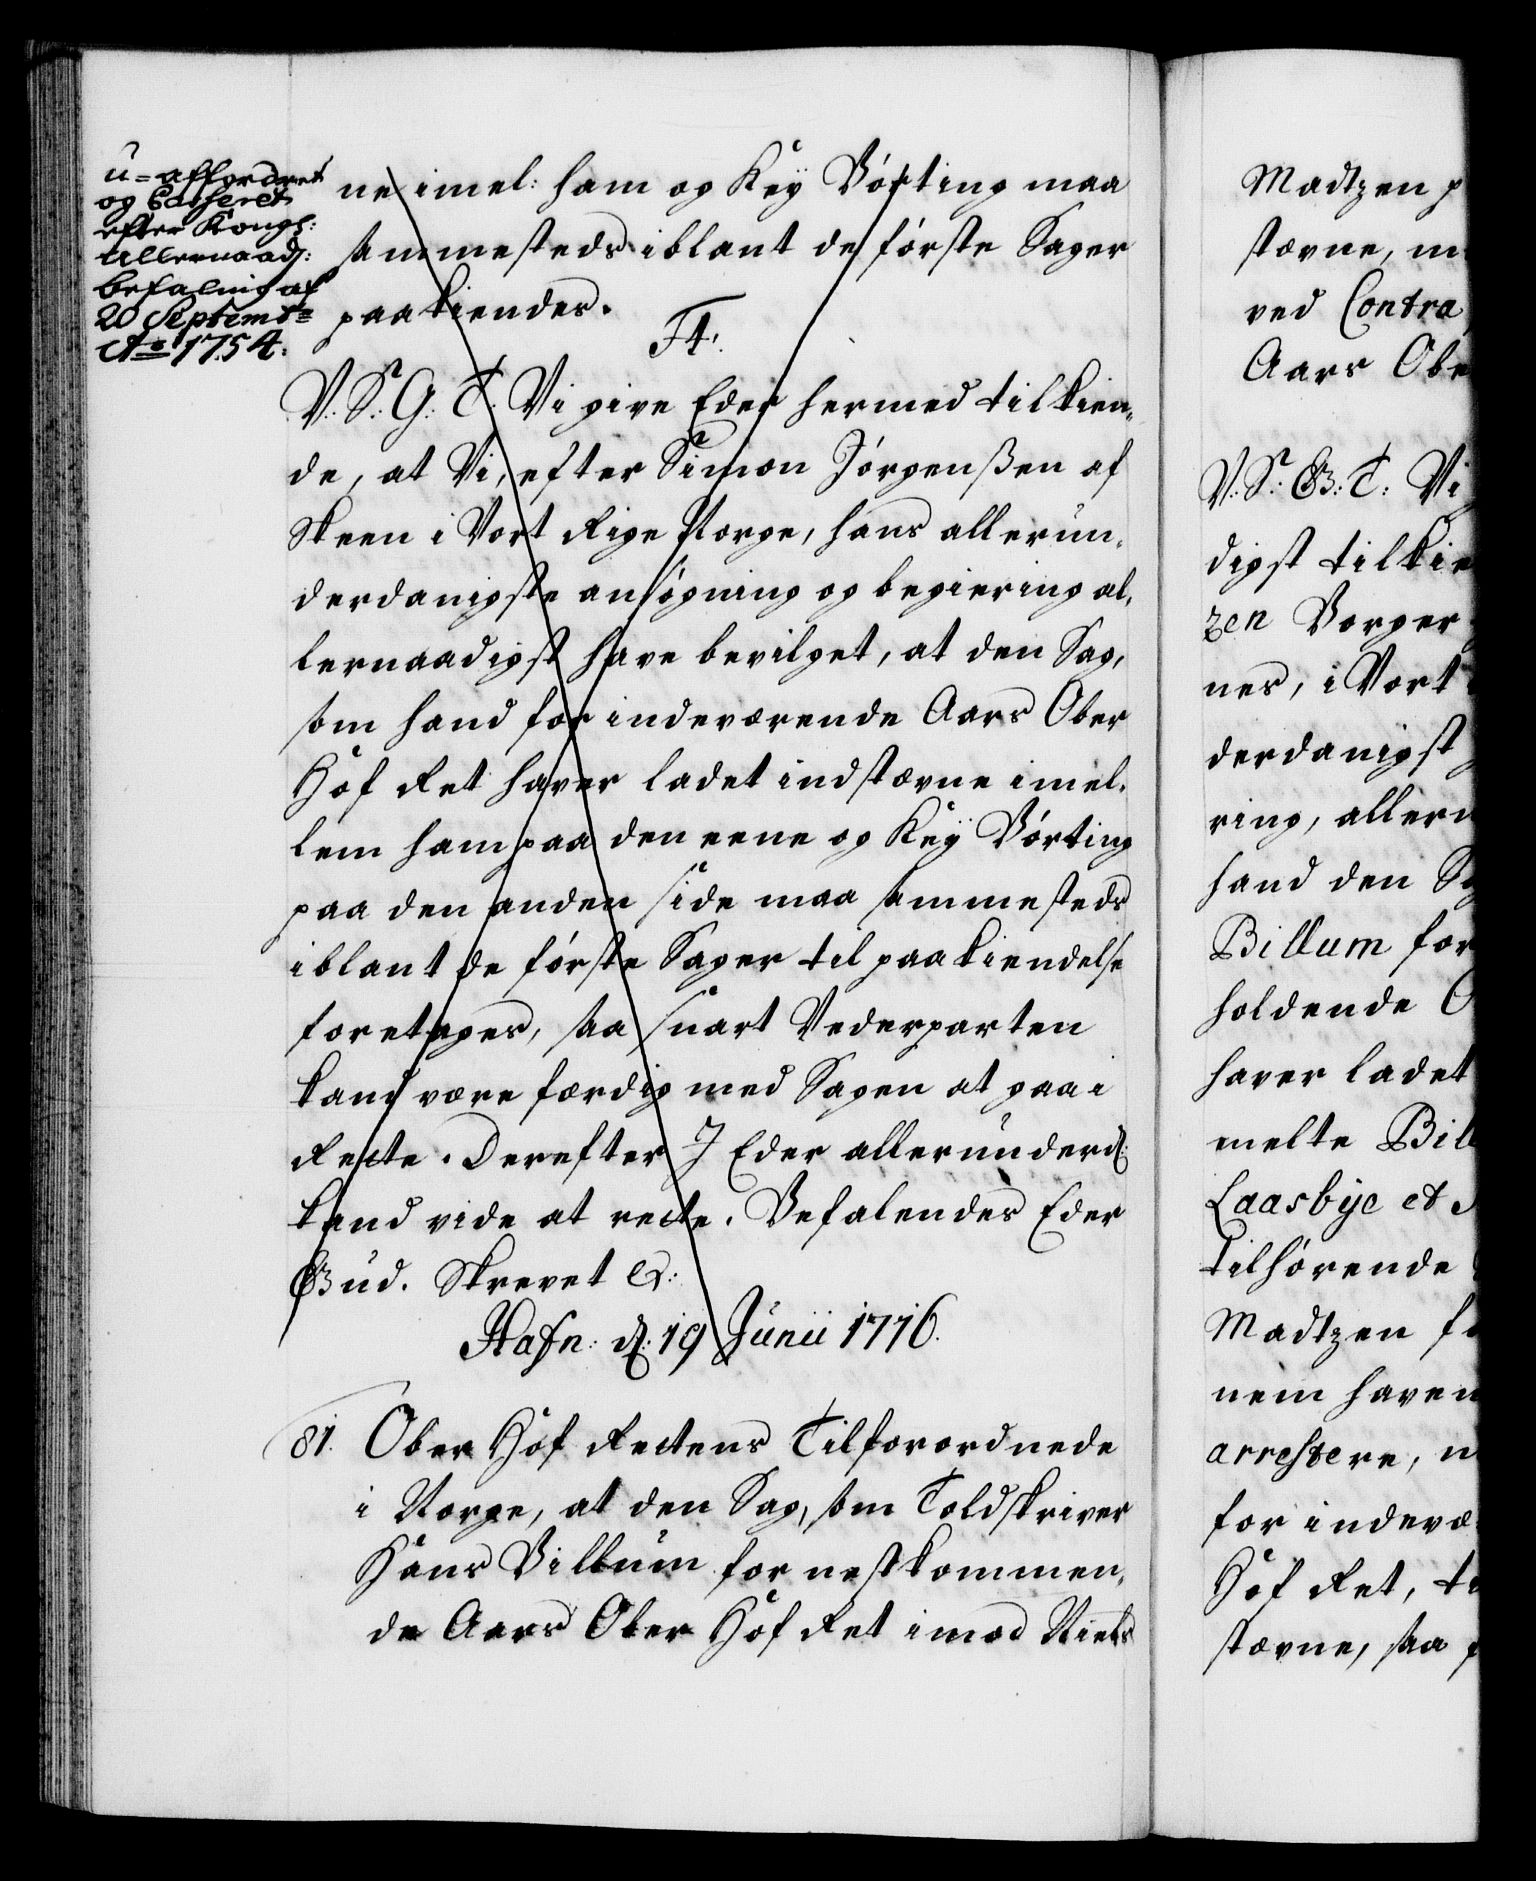 u-affordret
og Casseret
efter Kongl:
Allernaad:
befaling af
20 Septembr
Ao 1754.
ne imel: ham og Key Børting maa
sammesteds iblant de første Sager
paakiendes.
F4.
V. S. G. T. Vi give Eder hermed tilkien-
de, at Vi, efter Simon Jørgenßen af
Skeen i Vort Rige Norge, hans allerun-
derdanigste ansøgning og begiering al-
lernaadigst have bevilget, at den Sag,
som hand for indeværende Aars Ober
Hof Ret haver ladet indstævne imel-
lem ham paa den eene og Key Børting
paa den anden side maa sammesteds
iblant de første Sager til paakiendelse
foretages, saa snart Vederparten
kand være færdig med Sagen at gaa i
Rette. Derefter I Eder allerunderd:
kand vide at rette. Befalendes Eder
Gud. Skrevet &:
Hafn: d: 19 Junii 1716.
81. Ober Hof Rettens Tilforordnede
i Norge, at den Sag, som Toldskriver
Hans Billum for nestkommen-
de Aars Ober Hof Ret imod Niels
Madtzen
stævne,
ved Contra
Aars Obe
V. S. G. T. Vi
digst tilkie
zen Borger
nes, i Vort
derdanigst
ring, allern
hand den Sa
Billum for
holdende O
haver ladet
melte Bill
Laasbye et
tilhørende
Madtzen
nem haven
arrestere,
for indevæ
Hof Ret,
stævne, saa